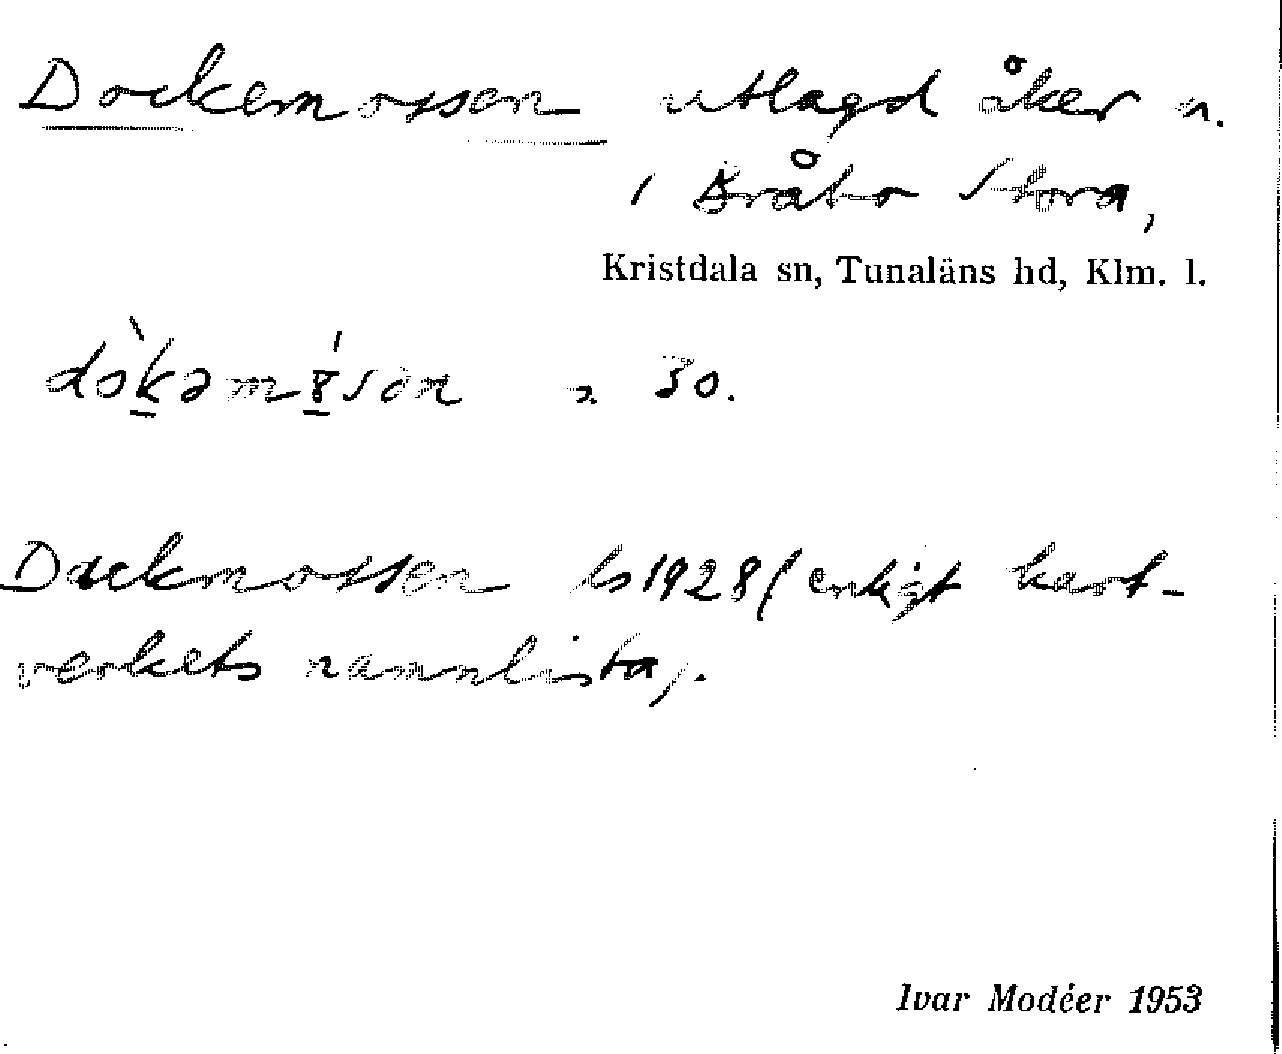 Dockemossen utlagd åker n.
i Bråbo Stora,
Kristdala sn, Tunaläns hd, Klm. l.
2 30.
Dockmossen ls 1928 (enligt kart-
verkets namnlista).
Ivar Modéer 1953